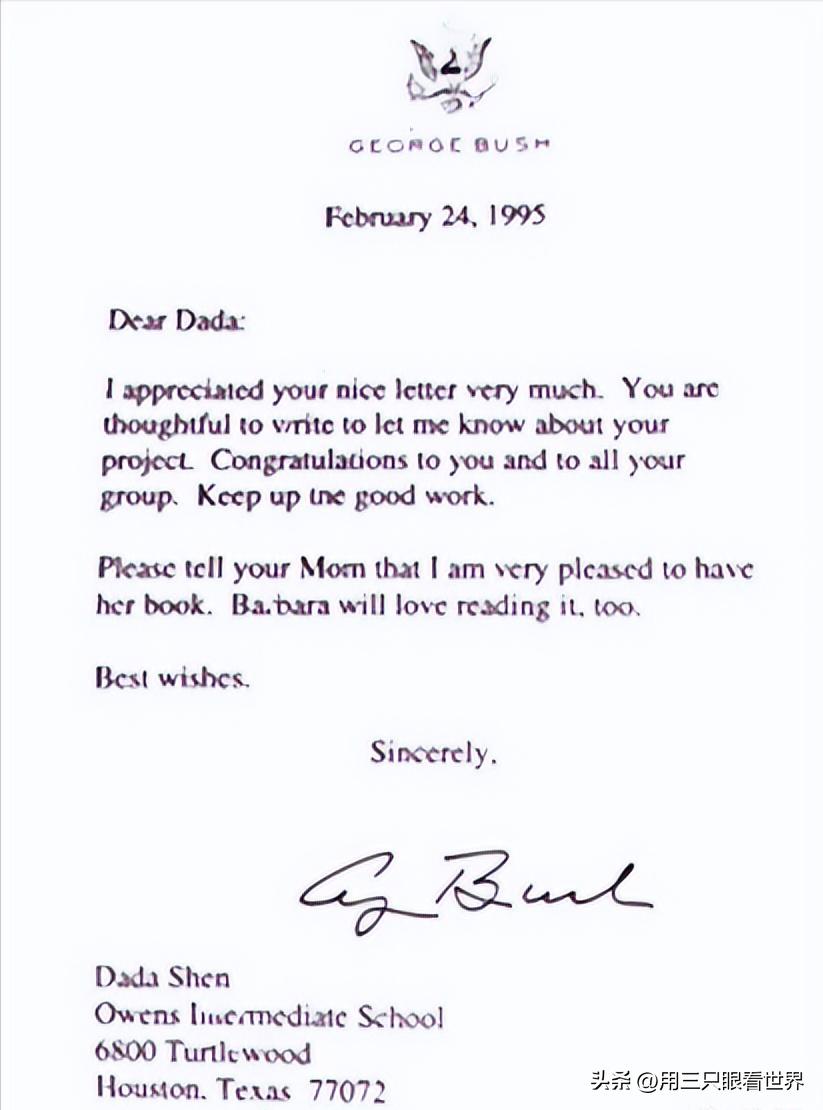 GEORGE BUSH
February 24, 1995
Dear Dada:
I appreciated your nice letter very much. You are
thoughtful to write to let me know about your
project. Congratulations to you and to all your
group. Keep up the good work.
Please tell your Mom that I am very pleased to have
her book. Barbara will love reading it, too.
Best wishes.
Sincerely,
G Bush
Dada Shen
Owens Intermediate School
6800 Turtlewood
Houston, Texas 77072
头条 @用三只眼看世界